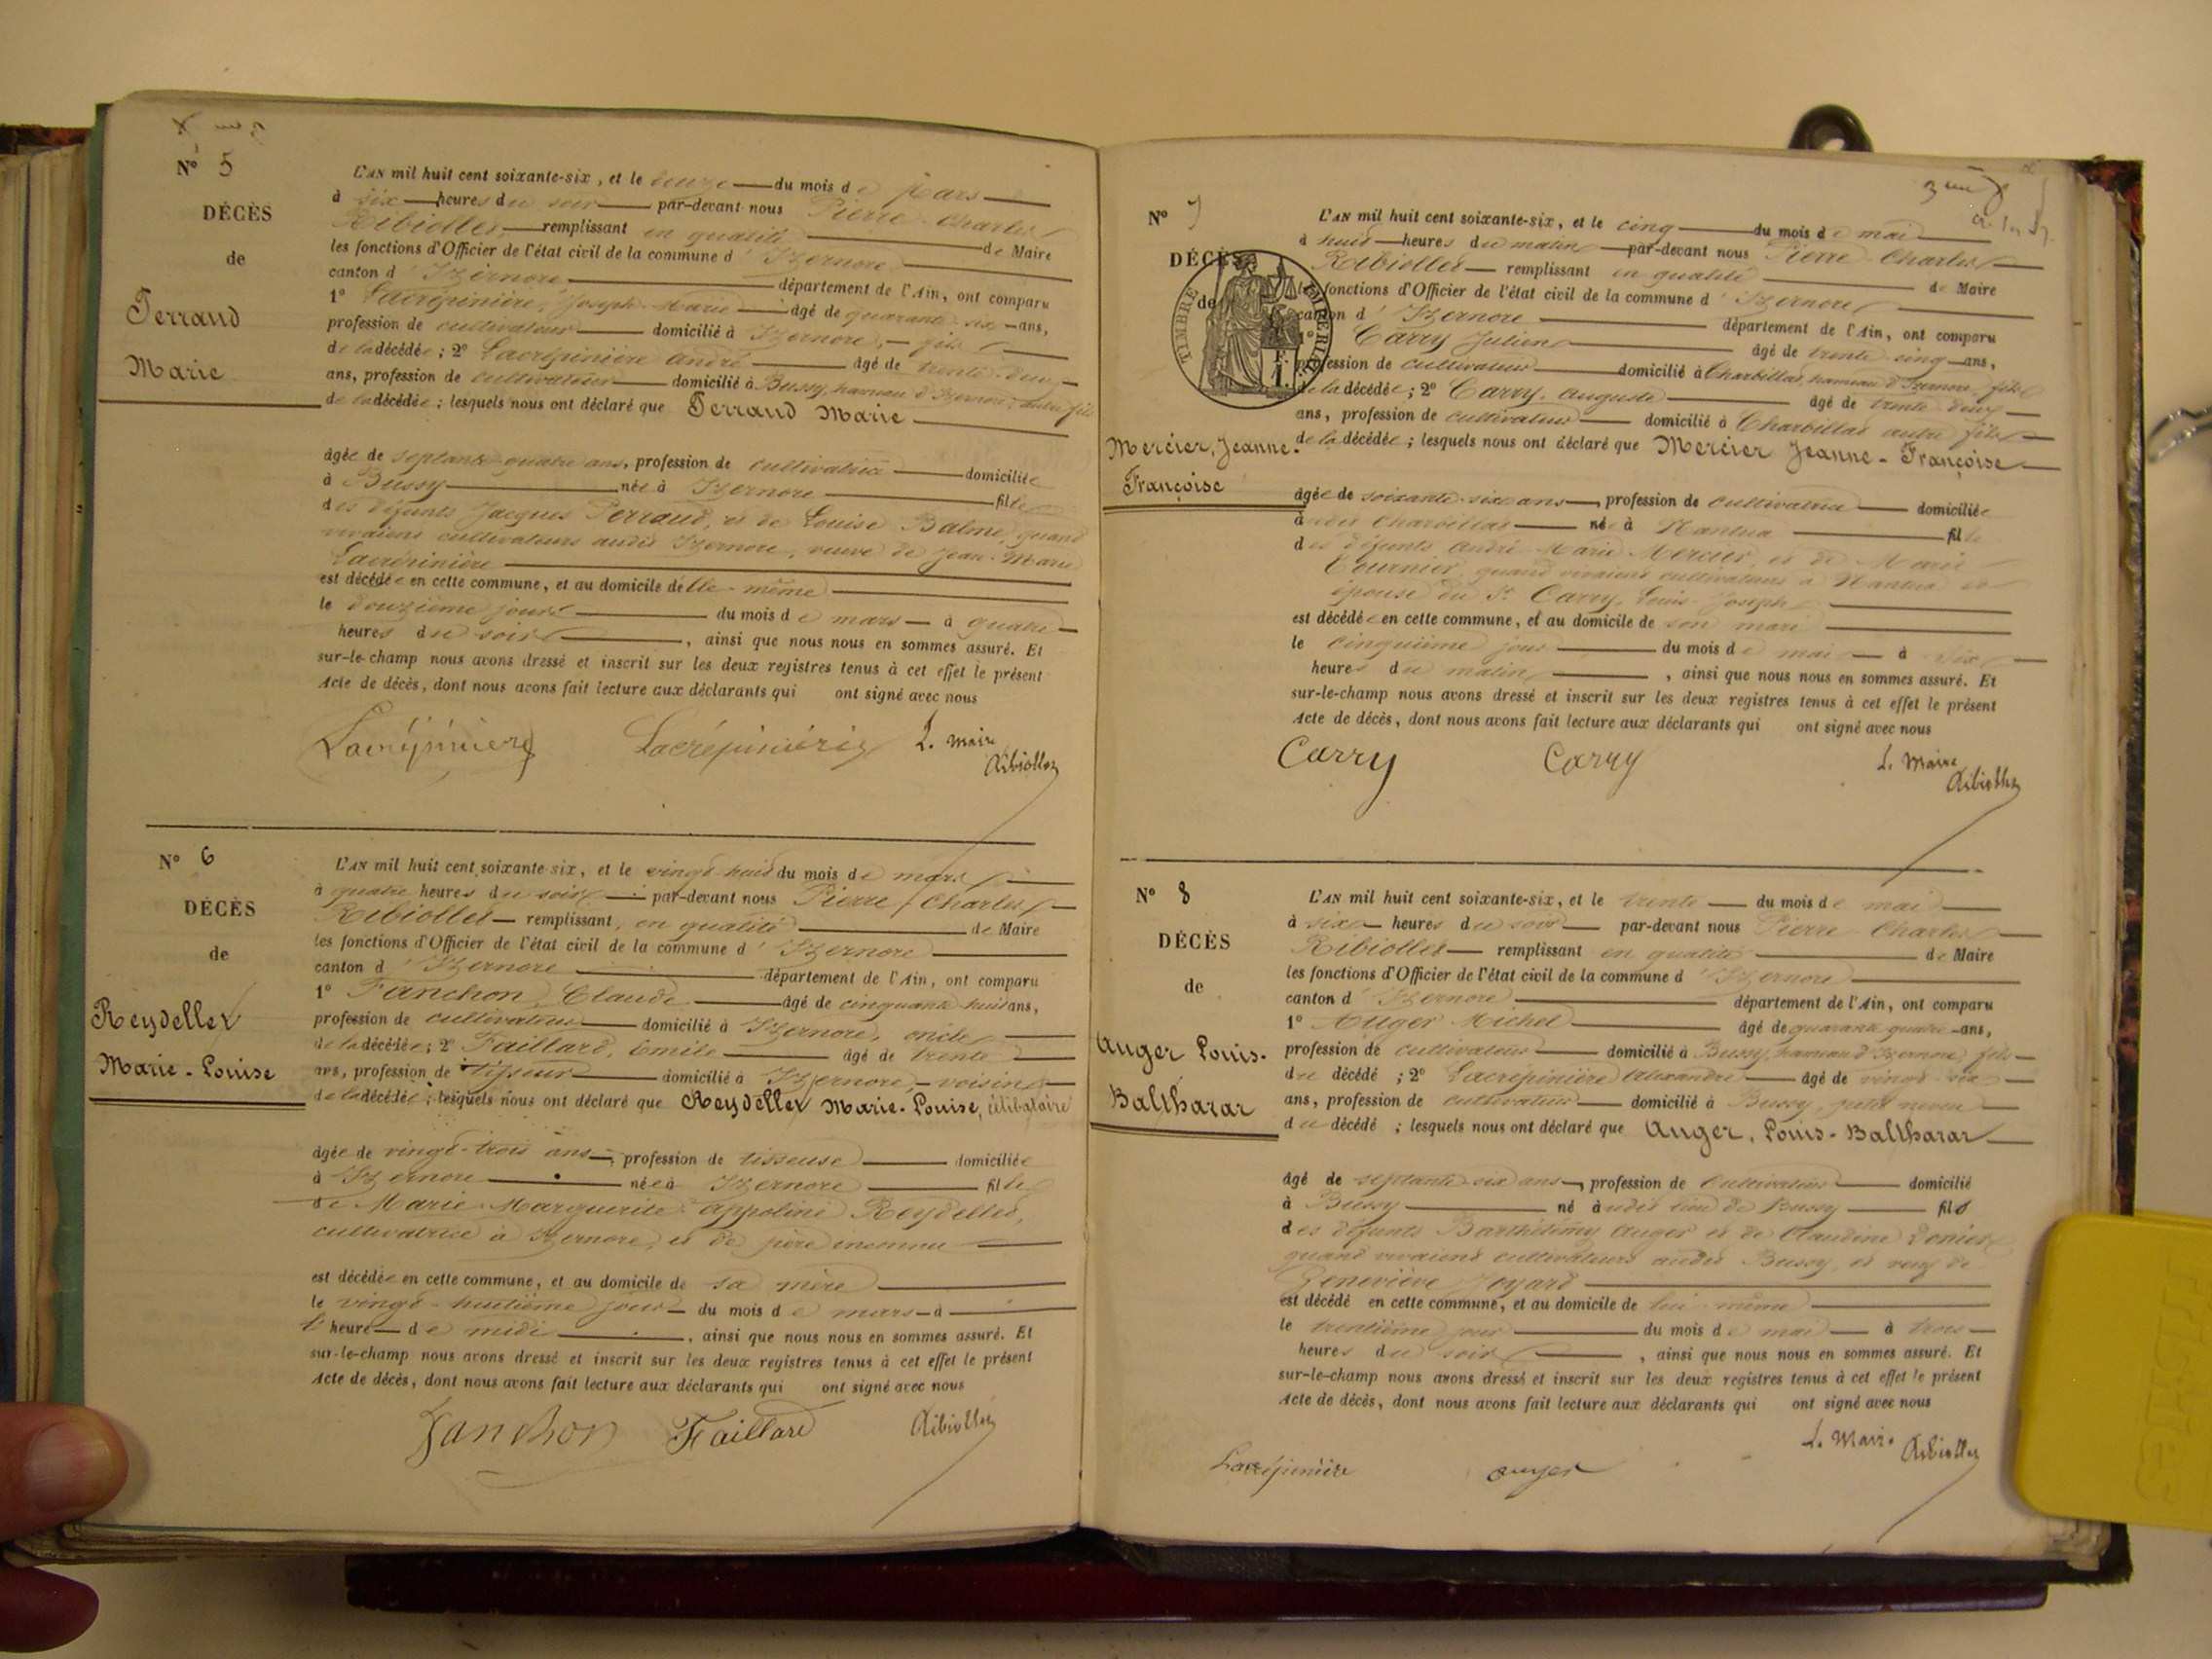 N° 5
DÉCÈS
de
Perraud
Marie
L'AN mil huit cent soixante-six, et le douze du mois de Mars
à six heures du soir par-devant nous Pierre Charles
Ribiollet remplissant en qualité de Maire
les fonctions d'Officier de l'état civil de la commune d'Izernore
canton d'Izernore département de l'Ain, ont comparu
1° Lacrépinière, Joseph-Marie âgé de quarante-six ans,
profession de cultivateur domicilié à Izernore, fils
de la décédée ; 2° Lacrépinière André âgé de trente-deux
ans, profession de cultivateur domicilié à Bussy, hameau d'Izernore, autre fils
de la décédée ; lesquels nous ont déclaré que Perraud Marie
âgée de septante-quatre ans, profession de cultivatrice domiciliée
à Bussy née à Izernore fille
des défunts Jacques Perraud, et de Louise Balme, quand
vivaient cultivateurs audit Izernore, veuve de Jean-Marie
Lacrépinière
est décédée en cette commune, et au domicile d'elle-même
le douzième jour du mois de mars à quatre
heures du soir, ainsi que nous nous en sommes assuré. Et
sur-le-champ nous avons dressé et inscrit sur les deux registres tenus à cet effet le présent
Acte de décès, dont nous avons fait lecture aux déclarants qui ont signé avec nous
Lacrépinière Lacrépinière L. Maire
Ribiollet
N° 6
DÉCÈS
de
Reydellet
Marie-Louise
L'AN mil huit cent soixante-six, et le vingt-huit du mois de mars
à quatre heures du soir par-devant nous Pierre Charles
Ribiollet remplissant, en qualité de Maire
les fonctions d'Officier de l'état civil de la commune d'Izernore
canton d'Izernore département de l'Ain, ont comparu
1° Fanchon, Claude âgé de cinquante-huit ans,
profession de cultivateur domicilié à Izernore, oncle
de la décédée ; 2° Faillard, Emile âgé de trente
ans, profession de tisseur domicilié à Izernore, voisin
de la décédée ; lesquels nous ont déclaré que Reydellet Marie-Louise, célibataire
âgée de vingt-trois ans, profession de tisseuse domiciliée
à Izernore née à Izernore fille
de Marie-Marguerite Appoline Reydellet,
cultivatrice à Izernore, et de père inconnu
est décédée en cette commune, et au domicile de sa mère
le vingt-huitième jour du mois de mars à
l'heure de midi, ainsi que nous nous en sommes assuré. Et
sur-le-champ nous avons dressé et inscrit sur les deux registres tenus à cet effet le présent
Acte de décès, dont nous avons fait lecture aux déclarants qui ont signé avec nous
Fanchon Faillard Ribiollet
3me
N° 7
DÉCÈS
de
TIMBRE IMPÉRIAL
Mercier, Jeanne-
Françoise
L'AN mil huit cent soixante-six, et le cinq du mois de mai
à huit heures du matin par-devant nous Pierre Charles
Ribiollet remplissant en qualité de Maire
les fonctions d'Officier de l'état civil de la commune d'Izernore
canton d'Izernore département de l'Ain, ont comparu
1° Carry Julien âgé de trente-cinq ans,
profession de cultivateur domicilié à Charbillat, hameau d'Izernore, fils
de la décédée ; 2° Carry, Auguste âgé de trente-deux
ans, profession de cultivateur domicilié à Charbillat autre fils
de la décédée ; lesquels nous ont déclaré que Mercier Jeanne-Françoise
âgée de soixante-six ans, profession de cultivatrice domiciliée
audit Charbillat née à Nantua fille
des défunts André-Marie Mercier, et de Marie
Tournier, quand vivaient cultivateurs à Nantua et
épouse du Sr Carry, Louis-Joseph
est décédée en cette commune, et au domicile de son mari
le cinquième jour du mois de mai à six
heures du matin, ainsi que nous nous en sommes assuré. Et
sur-le-champ nous avons dressé et inscrit sur les deux registres tenus à cet effet le présent
Acte de décès, dont nous avons fait lecture aux déclarants qui ont signé avec nous
Carry Carry L. Maire
Ribiollet
N° 8
DÉCÈS
de
Auger Louis-
Balthazar
L'AN mil huit cent soixante-six, et le trente du mois de mai
à six heures du soir par-devant nous Pierre Charles
Ribiollet remplissant en qualité de Maire
les fonctions d'Officier de l'état civil de la commune d'Izernore
canton d'Izernore département de l'Ain, ont comparu
1° Auger Michel âgé de quarante-quatre ans,
profession de cultivateur domicilié à Bussy, hameau d'Izernore, fils
du décédé ; 2° Lacrépinière Alexandre âgé de vingt-six
ans, profession de cultivateur domicilié à Bussy, petit neveu
du décédé ; lesquels nous ont déclaré que Auger, Louis-Balthazar
âgé de septante-six ans, profession de Cultivateur domicilié
à Bussy né audit lieu de Bussy fils
des défunts Barthélémy Auger et de Claudine
quand vivaient cultivateurs audit Bussy, et veuf de
Geneviève Joyard
est décédé en cette commune, et au domicile de lui-même
le trentième jour du mois de mai à trois
heures du soir, ainsi que nous nous en sommes assuré. Et
sur-le-champ nous avons dressé et inscrit sur les deux registres tenus à cet effet le présent
Acte de décès, dont nous avons fait lecture aux déclarants qui ont signé avec nous
L. Maire Ribiollet
Lacrépinière auger